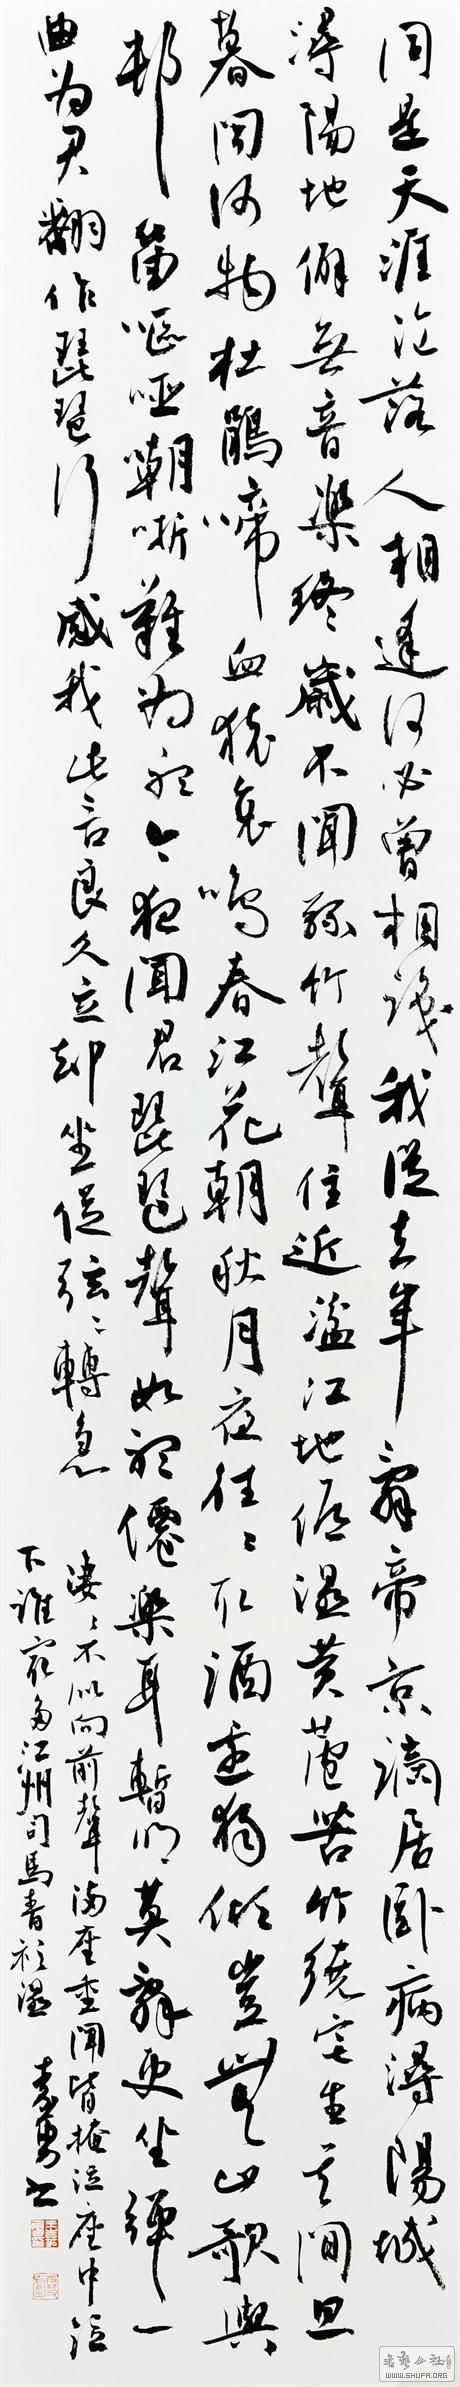 同是天涯淪落人相逢何必曾相識我從去年辭帝京謫居卧病潯陽城
潯陽地僻無音樂終歲不聞絲竹聲住近湓江地低濕黄蘆苦竹繞宅生其間旦
暮聞何物杜鵑啼血猿哀鳴春江花朝秋月夜往々取酒還獨傾豈無山歌與
邨笛嘔啞嘲哳難為聽今夜聞君琵琶聲如聽僊樂耳暫明莫辭更坐彈一
曲为君翻作琵琶行感我此言良久立却坐促弦々轉急
淒々不似向前聲满座重聞皆掩泣座中泣
下誰最多江州司馬青衫濕
書
WWW.SHUFA.ORG